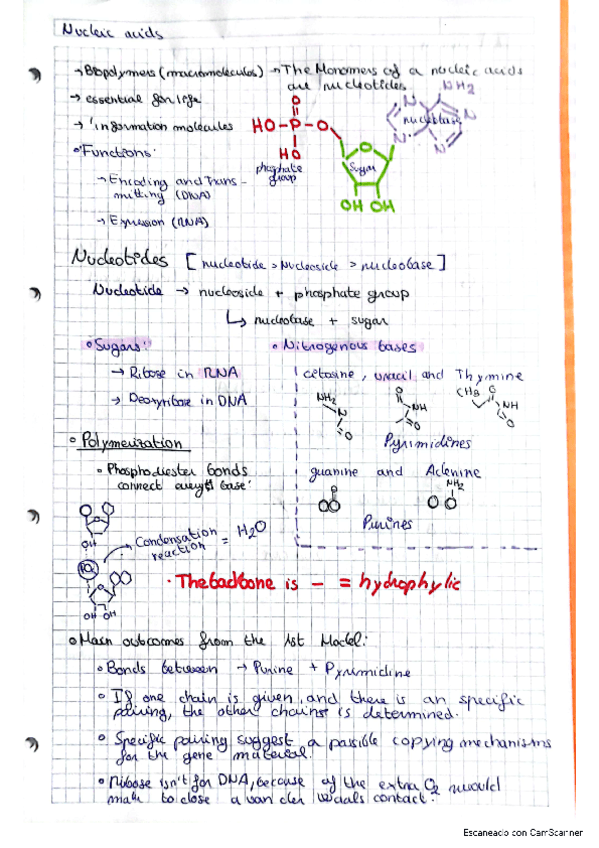 Nucleic acids
→ Biopolymers (macromolecules) → The Monomers of a nucleic acids
are nucleotides
→ essential for life
→ 'information molecules
• 'Functions'
→ Encoding and Trans-
mitting (DNA)
→ Expression (RNA)
O
HO-P-O
HO
phosphate
group
Sugar
OH OH
NH2
N
N
N
N
nucleobase
Nucleotides [nucleotide > Nucleoside > nucleobase]
Nucleotide → nucleoside + phosphate group
↳ nucleobase + sugar
• Sugars:
→ Ribose in RNA
→ Deoxyribose in DNA
• Nitrogenous bases
cetosine, uracil and Thymine
NH2
N
O
O
NH
O
CH3
O
NH
O
Pyrimidines
guanine and Adenine
NH2
Purines
• Polymerization
• Phosphodiester bonds
connect every base'
OH
PO4
OH OH
Condensation
reaction = H2O
• The backbone is - = hydrophylic
• Main outcomes from the 1st Model:
• Bonds between → Purine + Pyrimidine
• If one chain is given, and there is an specific
pairing, the other chains is determined.
• Specific pairing suggest a possible copying mechanisms
for the gene material.
• Ribose isn't for DNA, because of the extra O2 would
make to close a van der Waals contact.
Escaneado con CamScanner